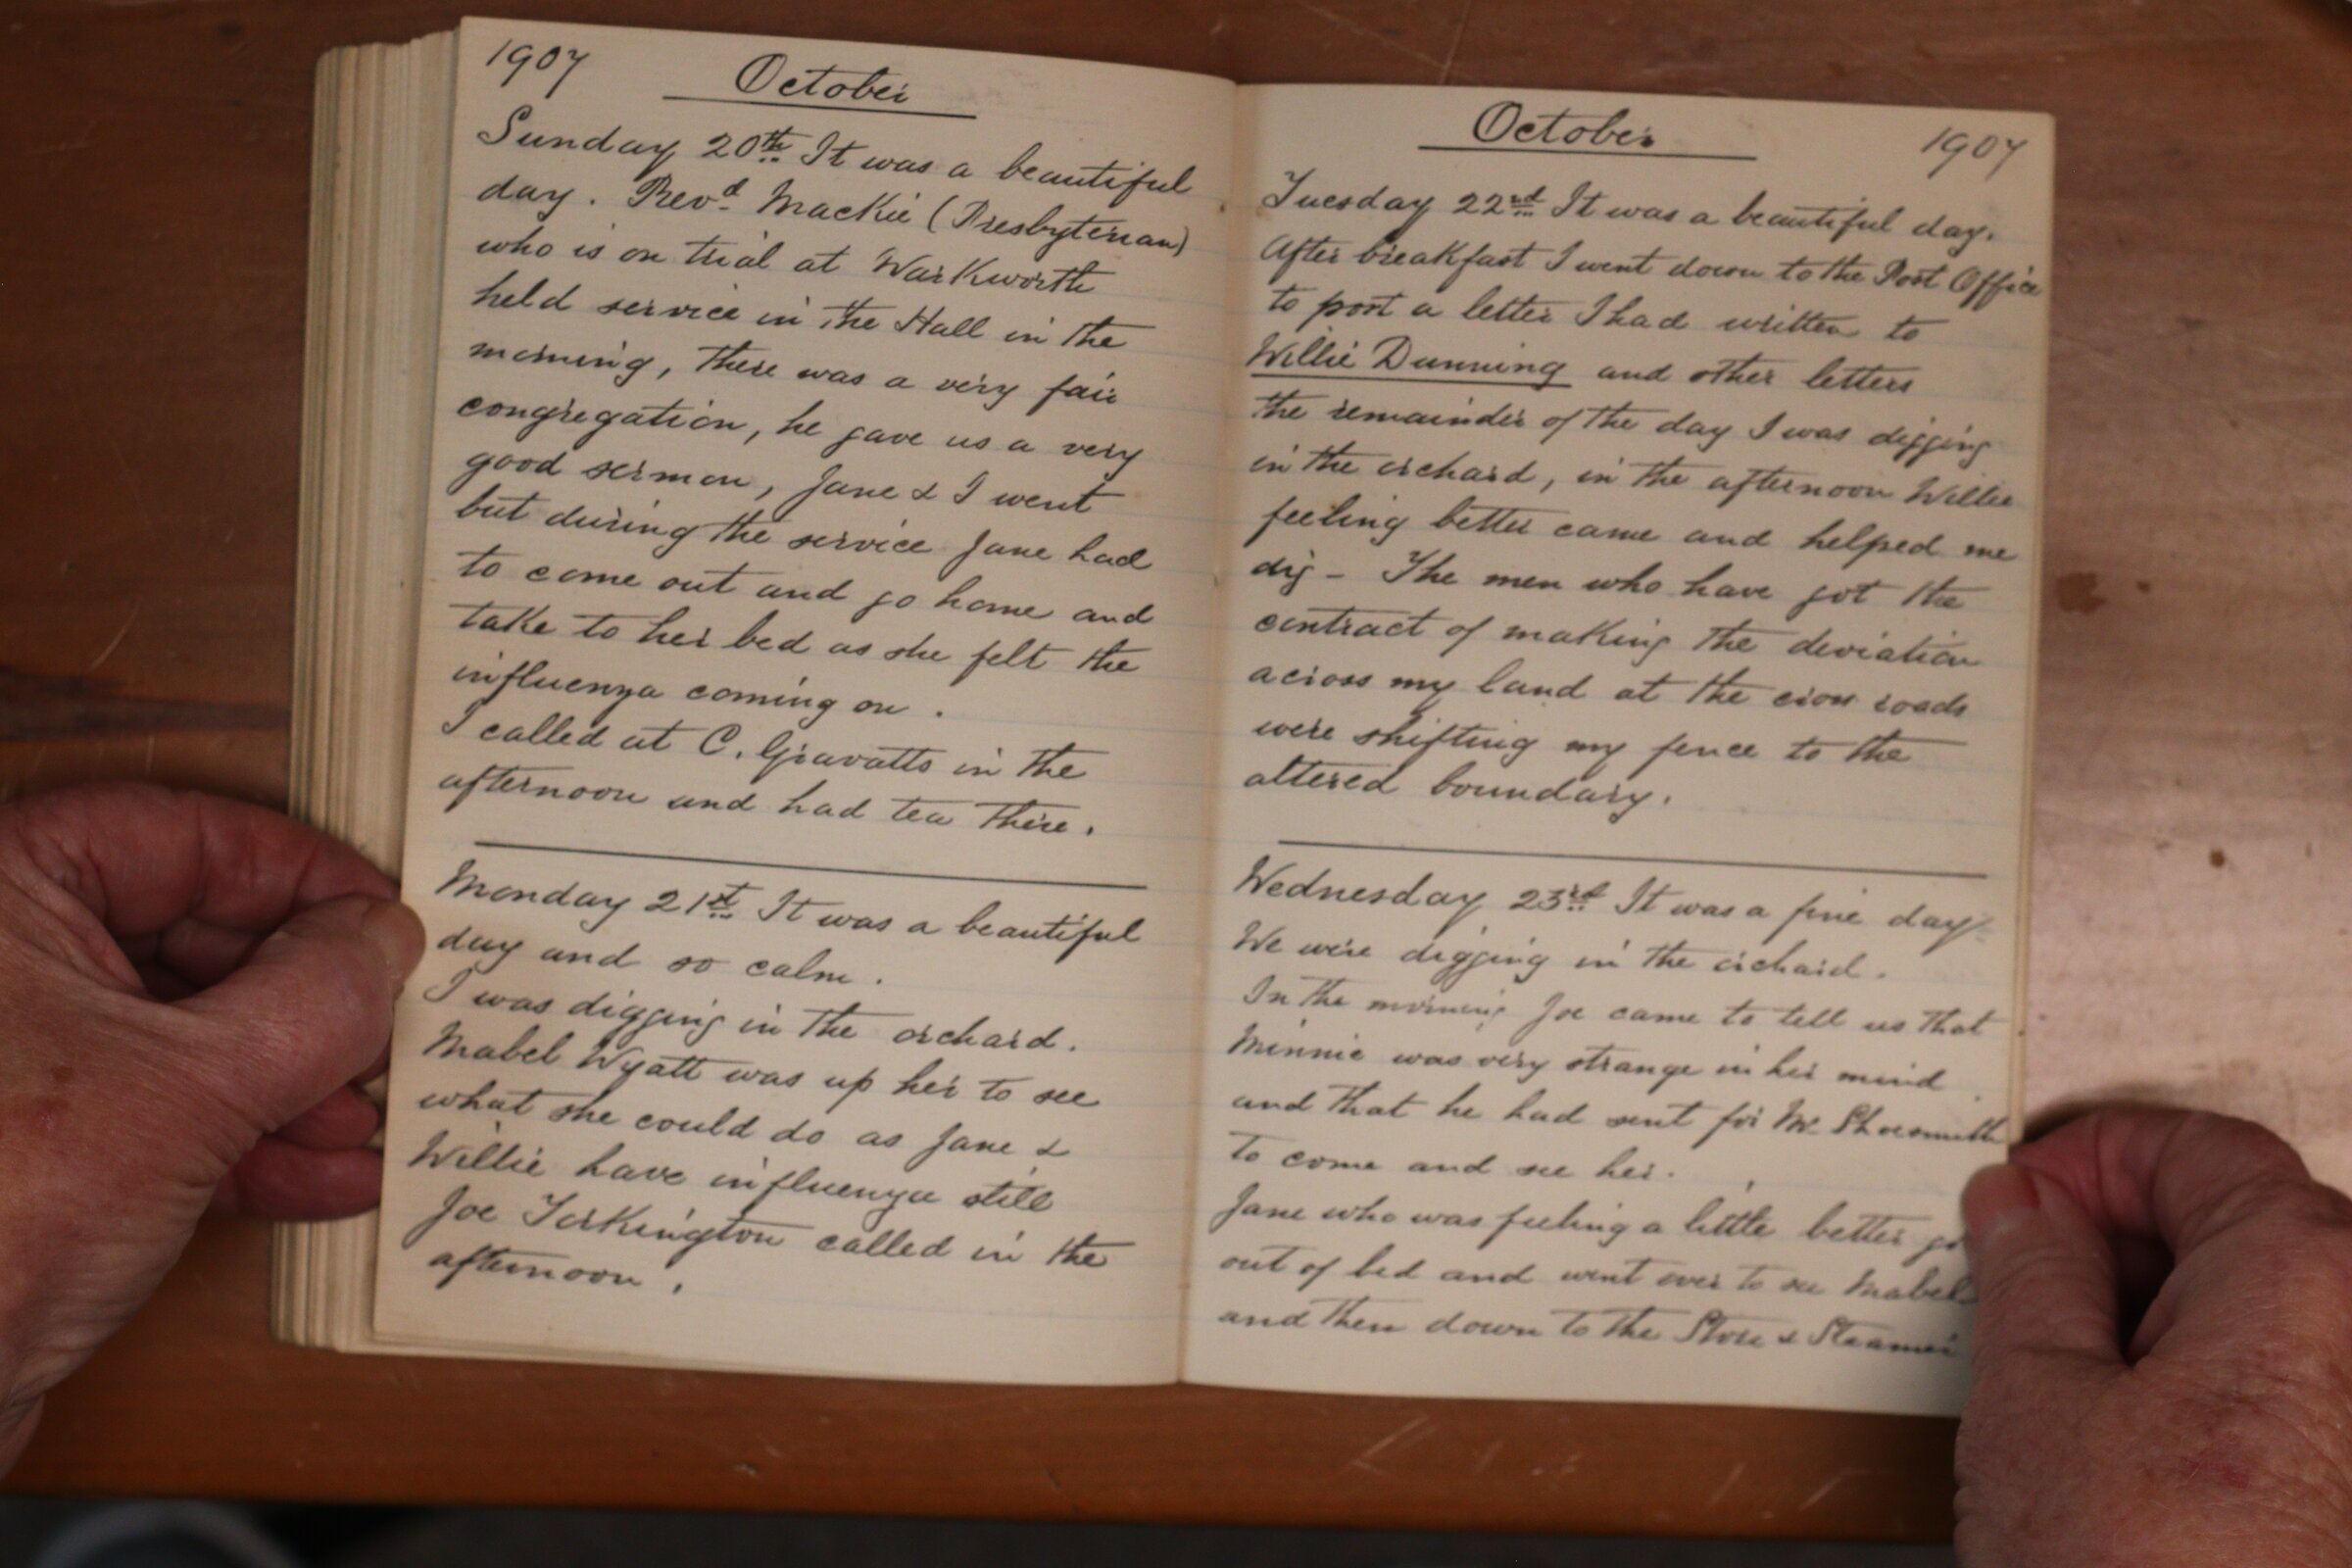 1907
October
Sunday 20th It was a beautiful
day. Revd. Mackie (Presbyterian)
who is on trial at Warkworth
held service in the Hall in the
morning, there was a very fair
congregation, he gave us a very
good sermon, Jane & I went
but during the service Jane had
to come out and go home and
take to her bed as she felt the
influenza coming on.
I called at C. Gravatts in the
afternoon and had tea there.
Monday 21st It was a beautiful
day and so calm.
I was digging in the orchard.
Mabel Wyatt was up her to see
what she could do as Jane &
Willie have influenza still
Joe Torkington called in the
afternoon.
October
1907
Tuesday 22nd It was a beautiful day.
After breakfast I went down to the Post Office
to post a letter I had written to
Willie Dunning and other letters
the remainder of the day I was digging
in the orchard, in the afternoon Willie
feeling better came and helped me
dig - The men who have got the
contract of making the deviation
across my land at the cross roads
were shifting my fence to the
altered boundary.
Wednesday 23rd It was a fine day
We were digging in the orchard.
In the morning Joe came to tell us that
Minnie was very strange in her mind
and that he had sent for Mr. Shoesmith
to come and see her.
Jane who was feeling a little better
out of bed and went over to see Mabel
and then down to the Store & Steamer